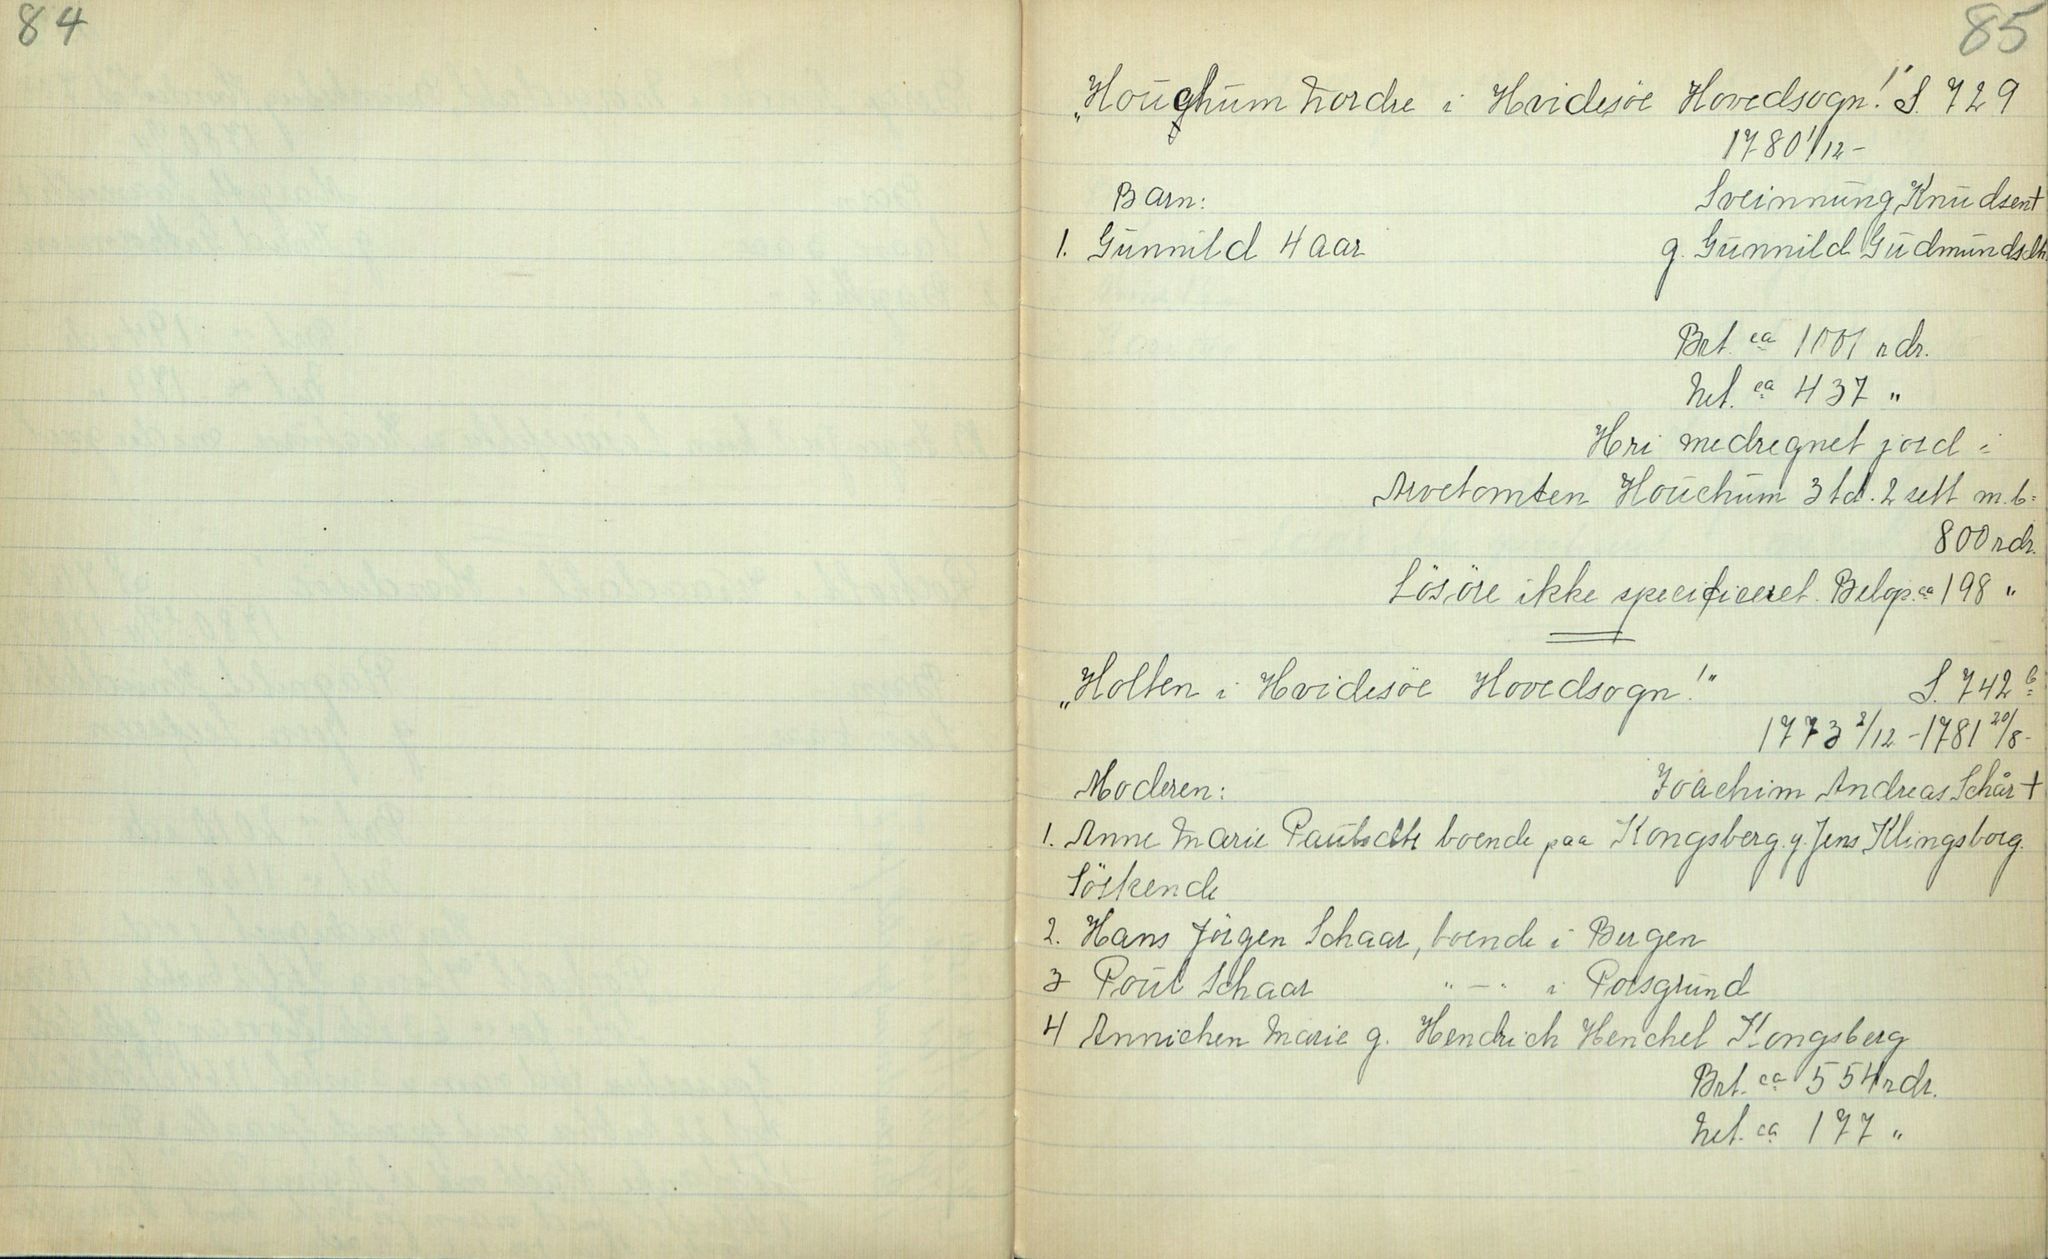 84
85
„Houghum Nordre i Hvidesøe Hovedsogn!" S. 729
1780 1/12 –
Barn: Sveinnung Knudsen †
1. Gunnild 4 aar g. Gunnild Gudmundsdtr.
Brt. ca 1001 rdr.
Net. ca 437 "
Hri medregnet jord i
Arvetomten Houchum 3 td. 2 sett m. b:
800 rdr.
Lösöre ikke specificeret. Belop. ca 198 "
„Holten i Hvidesøe Hovedsogn!" S. 742 b
1773 2/12 – 1781 20/8 –
Moderen: Joachim Andreas Schår †
1. Anne Marie Paulsdtr boende paa Kongsberg. g. Jens Klingsborg.
Söskende
2. Hans Jörgen Schaar, boende i Bergen
3 Poul Schaar " – " i Porsgrund
4 Annichen Marie g. Hendrich Henchel Kongsberg
Brt. ca 554 rdr.
Net. ca 177 "